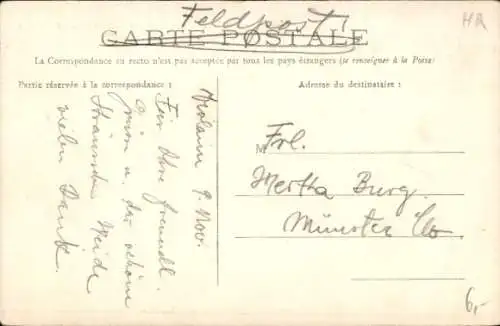 Feldpost!
HR
CARTE POSTALE
La Correspondance au recto n'est pas acceptée par tous les pays étrangers (se renseigner à la Poste)
Partie réservée à la correspondance :
Adresse du destinataire :
9. Nov.
Für Ihre freundl.
u. das schöne
Sträussche Weide
vielen Dank.
M
Frl.
Mertha Burg.
Münster
6,-